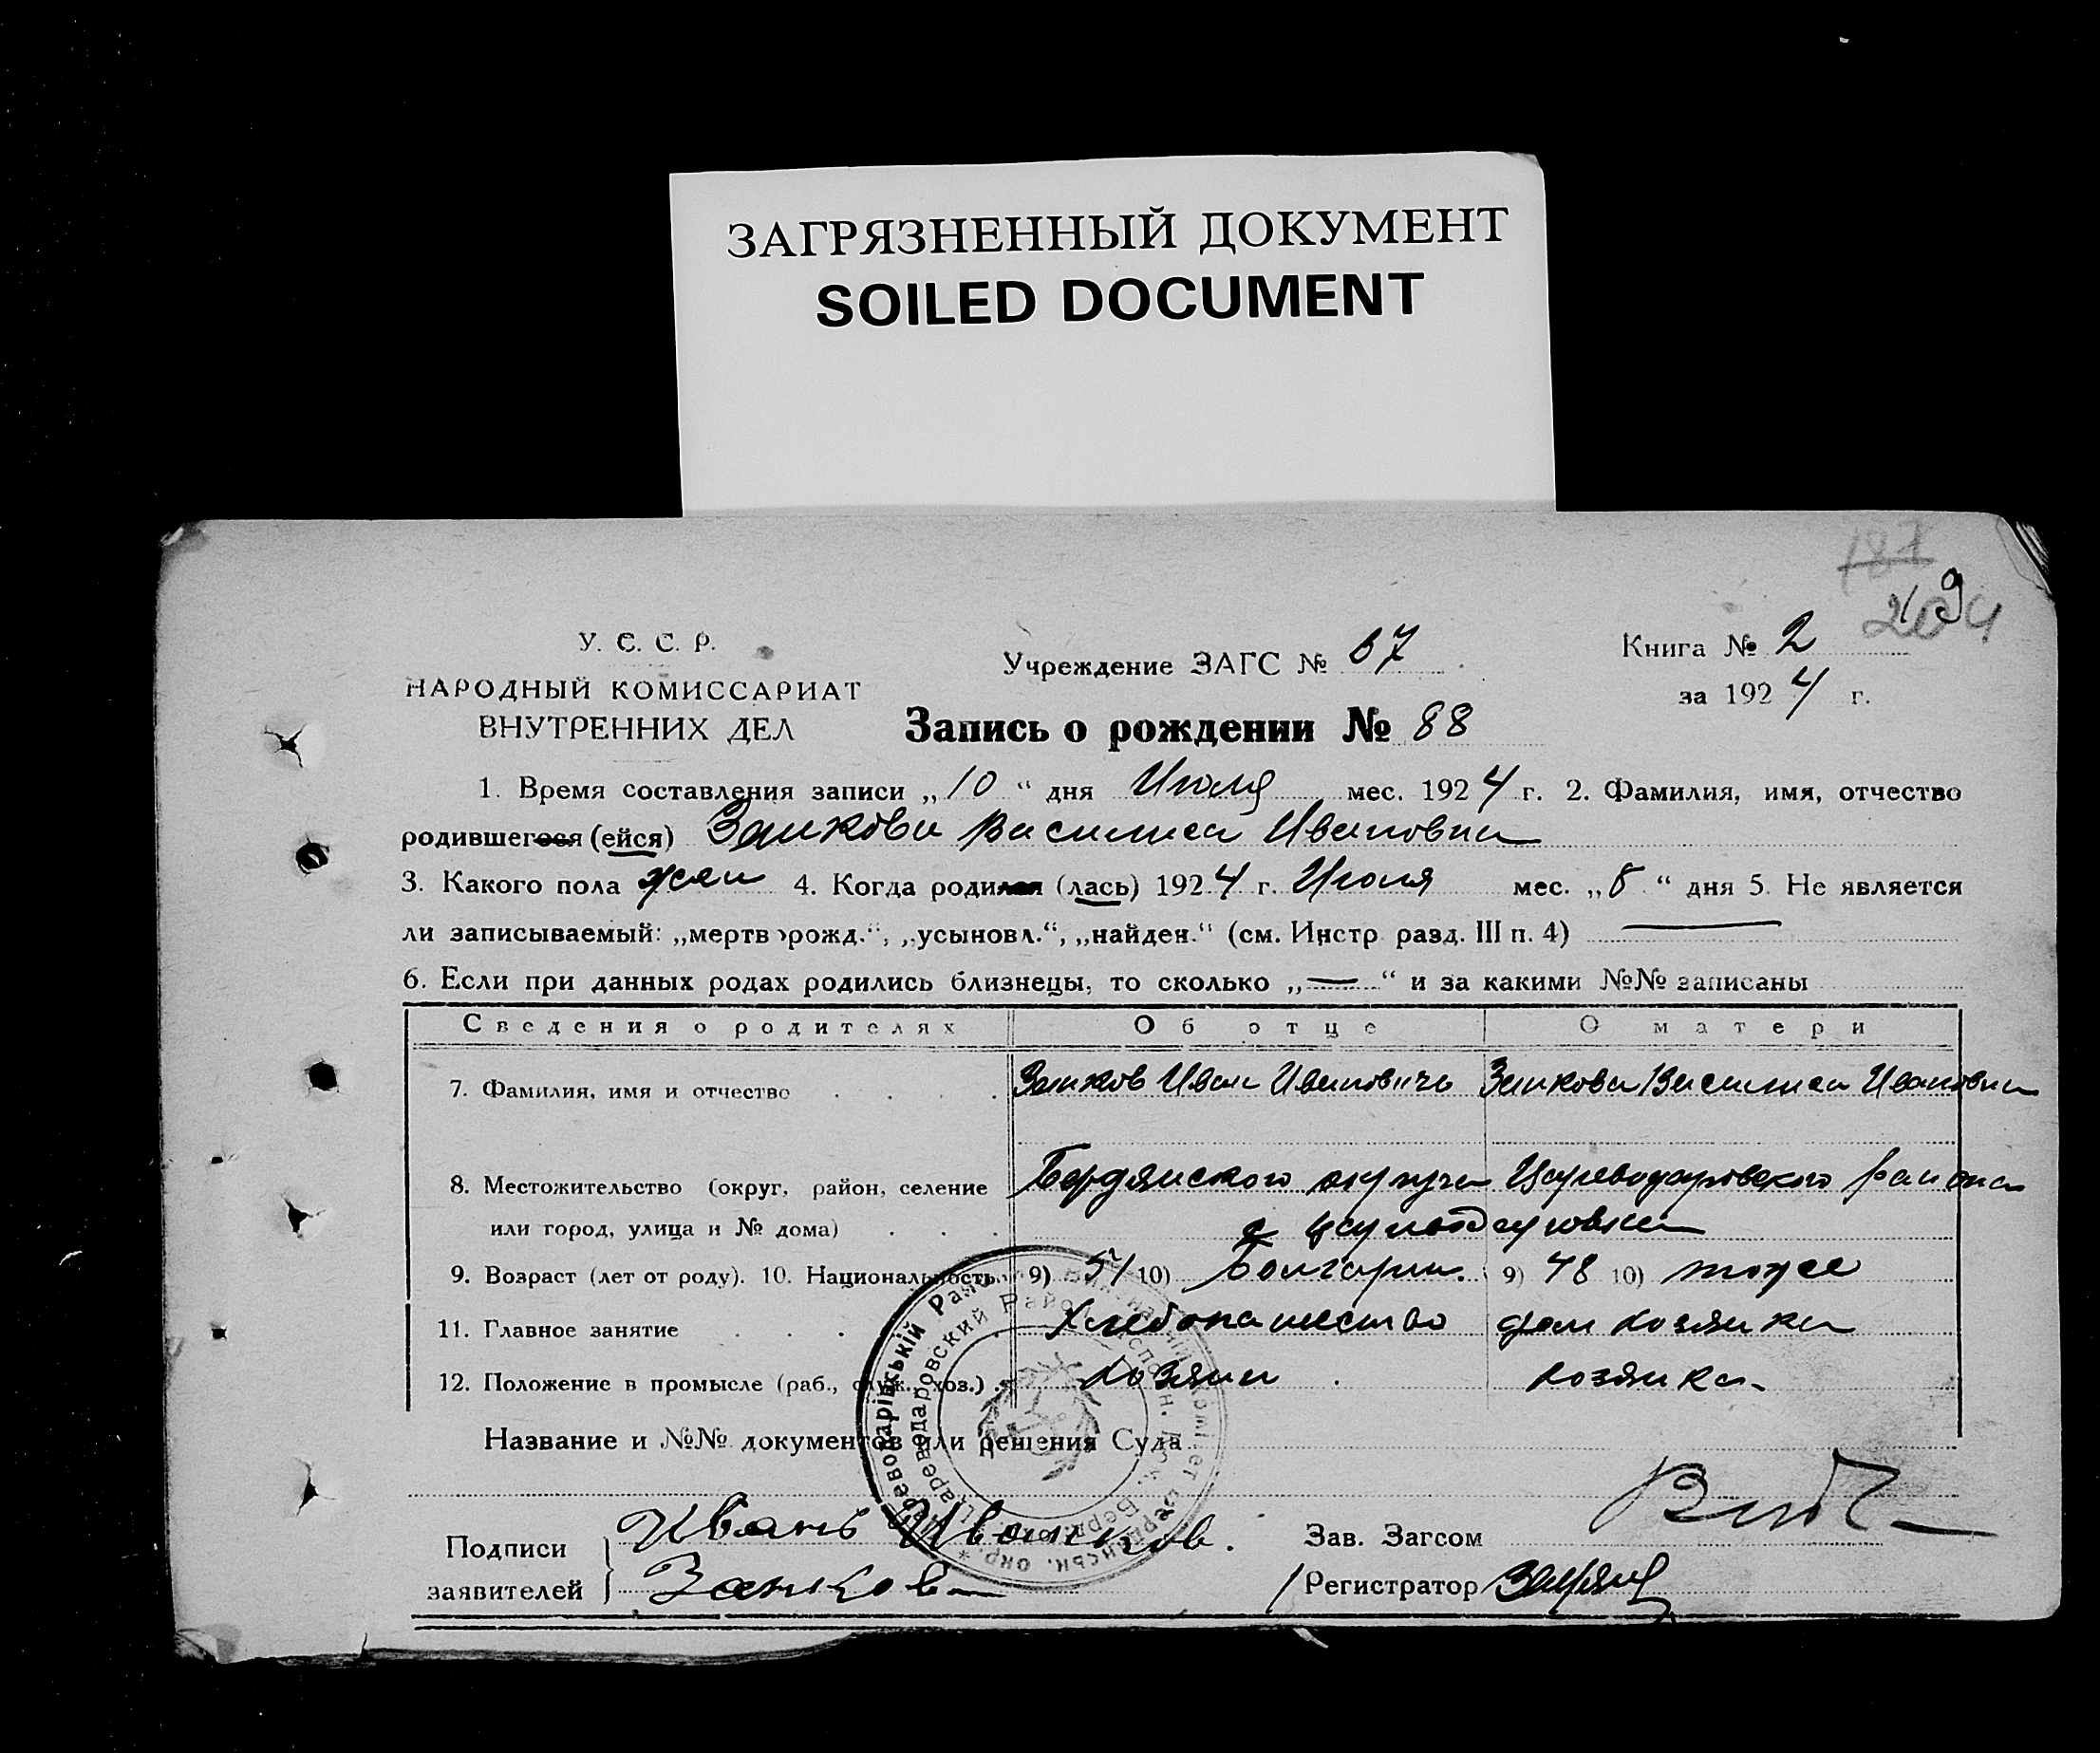 ЗАГРЯЗНЕННЫЙ ДОКУМЕНТ
SOILED DOCUMENT
187
У. С. С. Р.
НАРОДНЫЙ КОМИССАРИАТ
ВНУТРЕННИХ ДЕЛ
Учреждение ЗАГС № 67
Книга № 2
за 1924 г.
Запись о рождении № 88
1. Время составления записи „10“ дня Июля мес. 1924 г. 2. Фамилия, имя, отчество
родившегося (ейся) Занкова Василиса Ивановна
3. Какого пола жен 4. Когда родился (лась) 1924 г. Июля мес. „8“ дня 5. Не является
ли записываемый: „мертворожд.“, „усыновл.“, „найден.“ (см. Инстр разд. III п. 4) —
6. Если при данных родах родились близнецы, то сколько „—“ и за какими №№ записаны
Сведения о родителях Об отце О матери
7. Фамилия, имя и отчество Занков Иван Ивановичь Занкова Василиса Ивановна
8. Местожительство (округ, район, селение Бердянского округа Цареводаровского района
или город, улица и № дома) с Цареводаровка
9. Возраст (лет от роду). 10. Национальность 9) 51 10) Болгарин. 9) 48 10) тоже
11. Главное занятие Хлебопашество дом хозяйка
12. Положение в промысле (раб., служ., хоз.) хозяин хозяйка
Название и №№ документов или решения Суда
Подписи Иванъ Иванков. Зав. Загсом
заявителей Занков Регистратор